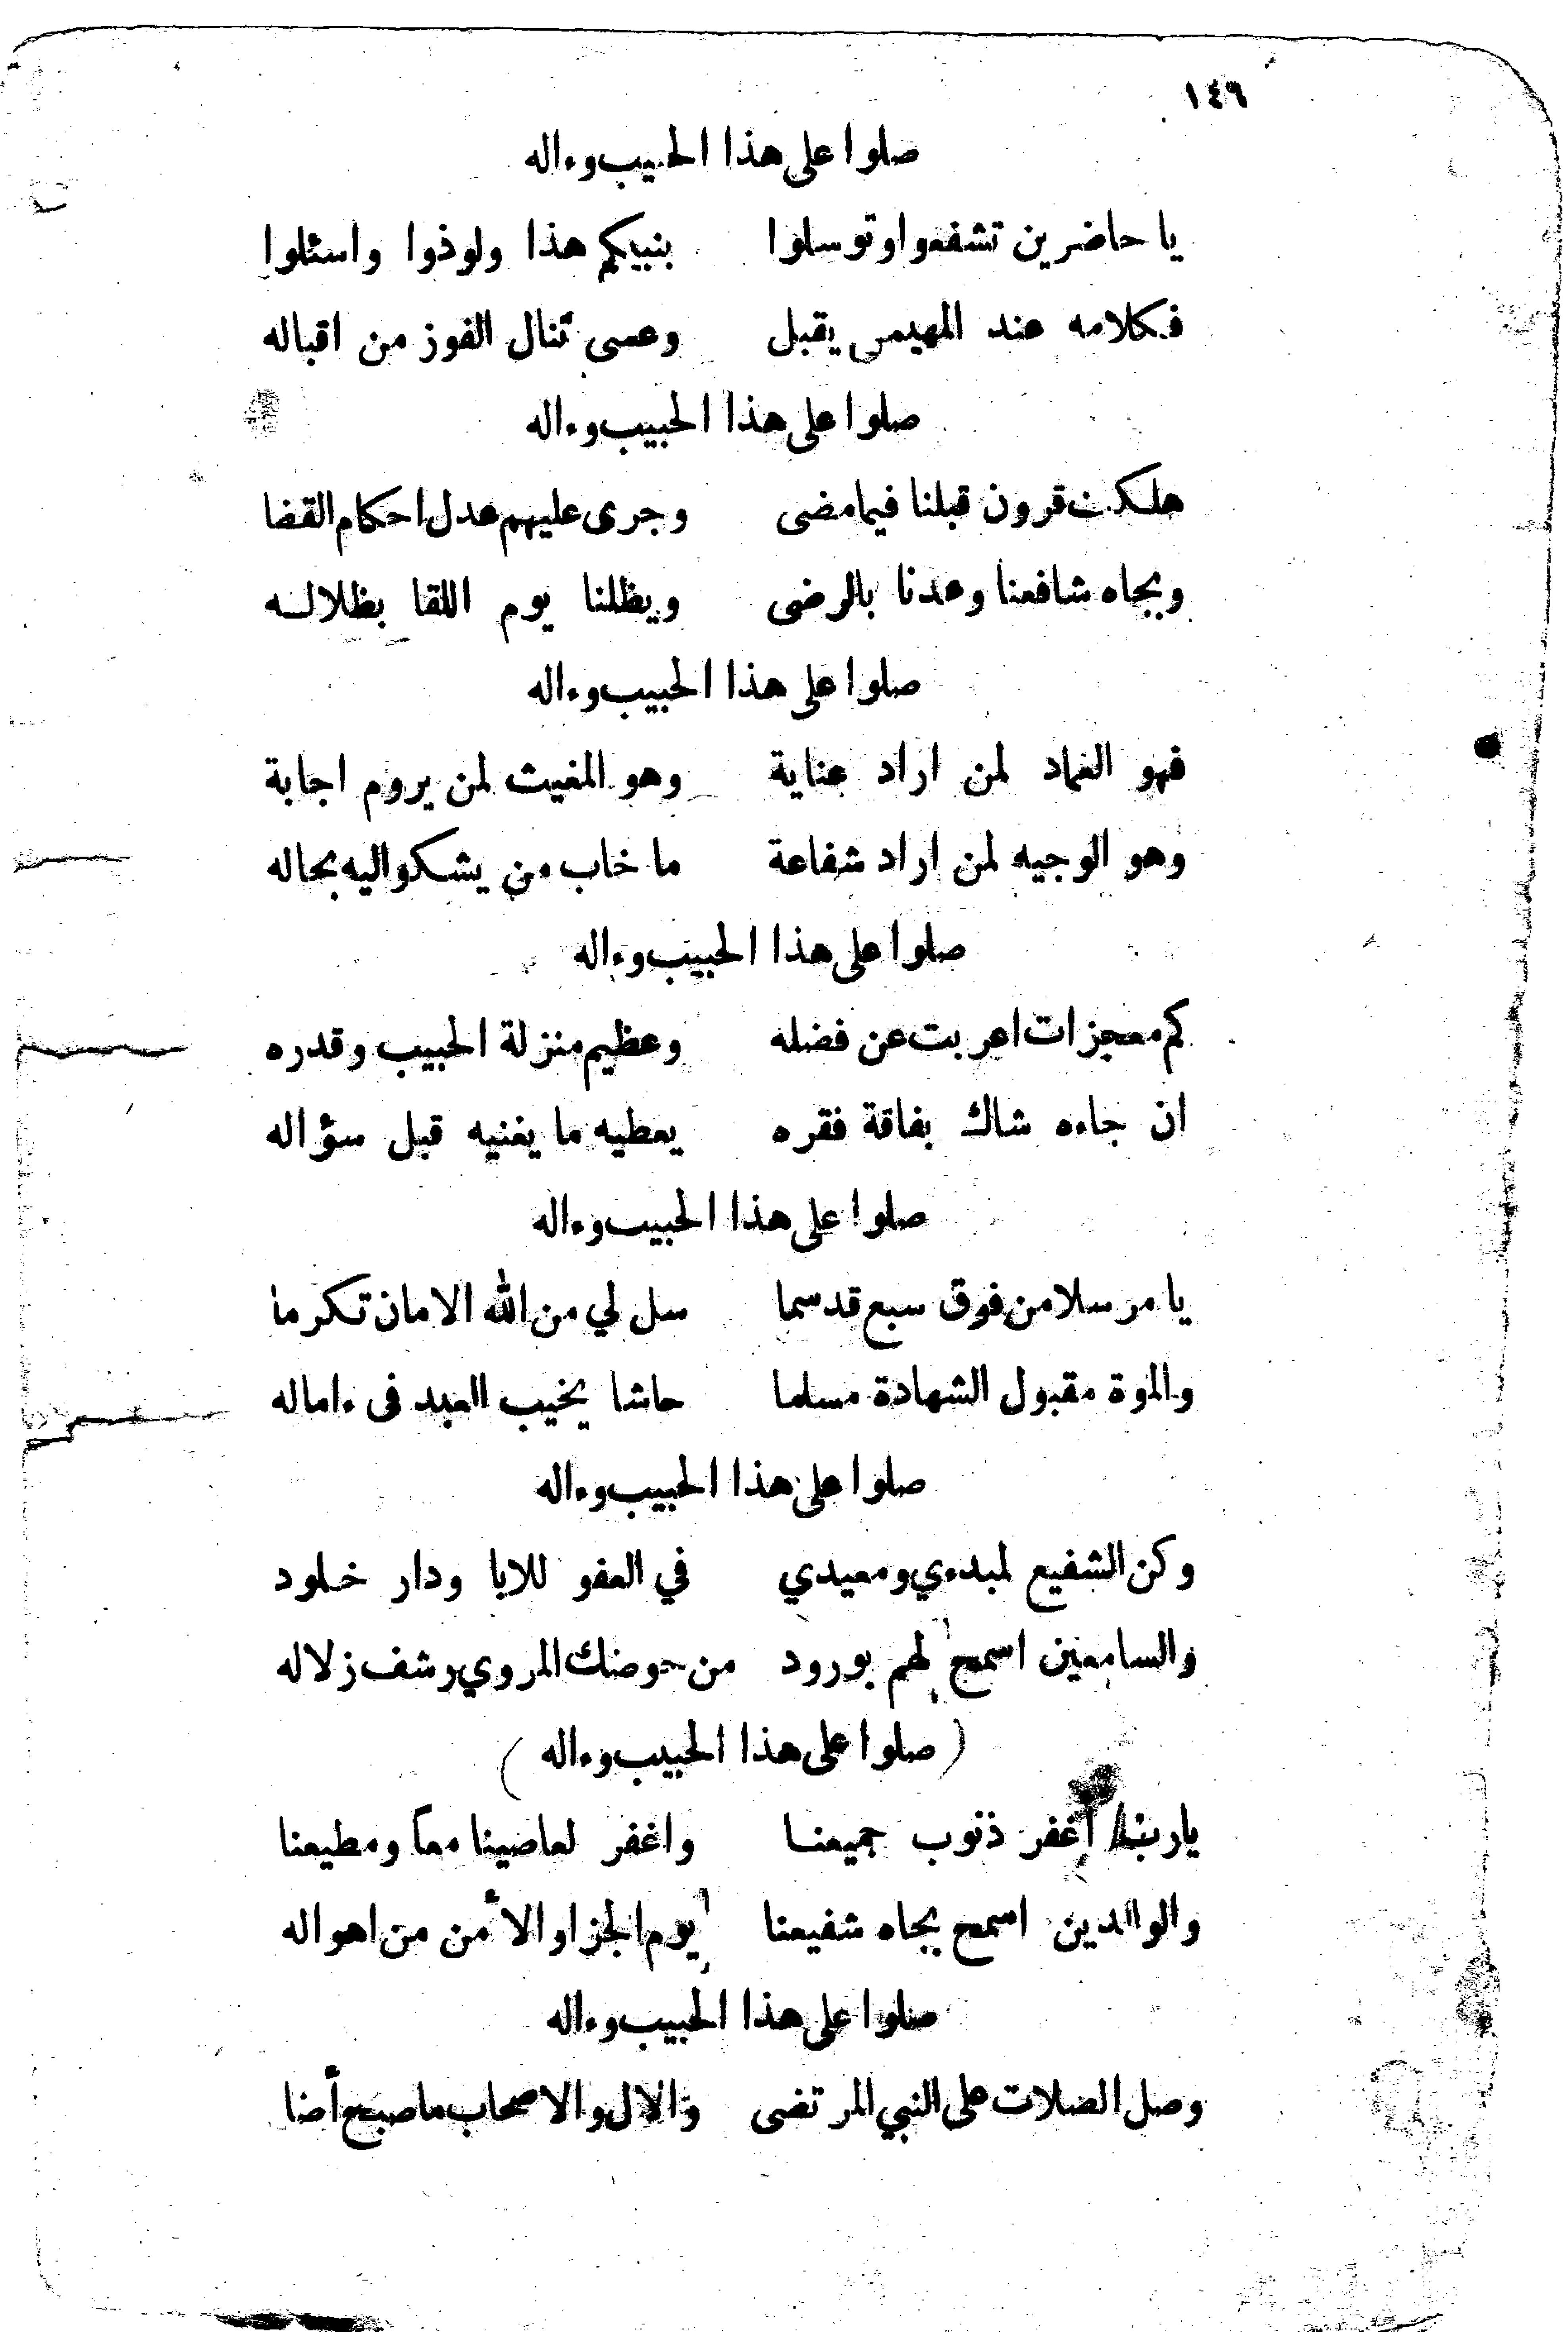 ١٤٩
صلوا على هذا الحبيب وءاله
يا حاضرين تشفعوا وتوسلوا بنبيكم هذا ولوذوا واسئلوا
فكلامه عند المهيمن يقبل وعسى تنال الفوز من اقباله
صلوا على هذا الحبيب وءاله
هلكت قرون قبلنا فيما مضى وجرى عليهم عدل احكام القضا
وبجاه شافعنا وعدنا بالرضى ويظلنا يوم اللقا بظلاله
صلوا على هذا الحبيب وءاله
فهو العماد لمن اراد عناية وهو المغيث لمن يروم اجابة
وهو الوجيه لمن اراد شفاعة ما خاب من يشكو اليه بحاله
صلوا على هذا الحبيب وءاله
كم معجزات اعربت عن فضله وعظيم منزلة الحبيب وقدره
ان جاءه شاك بفاقة فقره يعطيه ما يغنيه قبل سؤاله
صلوا على هذا الحبيب وءاله
يا مرسلا من فوق سبع قد سما سل لي من الله الامان تكرما
والموة مقبول الشهادة مسلما حاشا يخيب العبد فى ءاماله
صلوا على هذا الحبيب وءاله
وكن الشفيع لمبدءي ومعيدي في العفو للابا ودار خلود
والسامعين اسمح لهم بورود من حوضك المروي رشف زلاله
( صلوا على هذا الحبيب وءاله )
يارب اغفر ذنوب جميعنا واغفر لعاصينا معاً ومطيعنا
والوالدين اسمح بجاه شفيعنا يوم الجزا والأمن من اهواله
صلوا على هذا الحبيب وءاله
وصل الصلات على النبي المرتضى والال والاصحاب ما صبح أضا